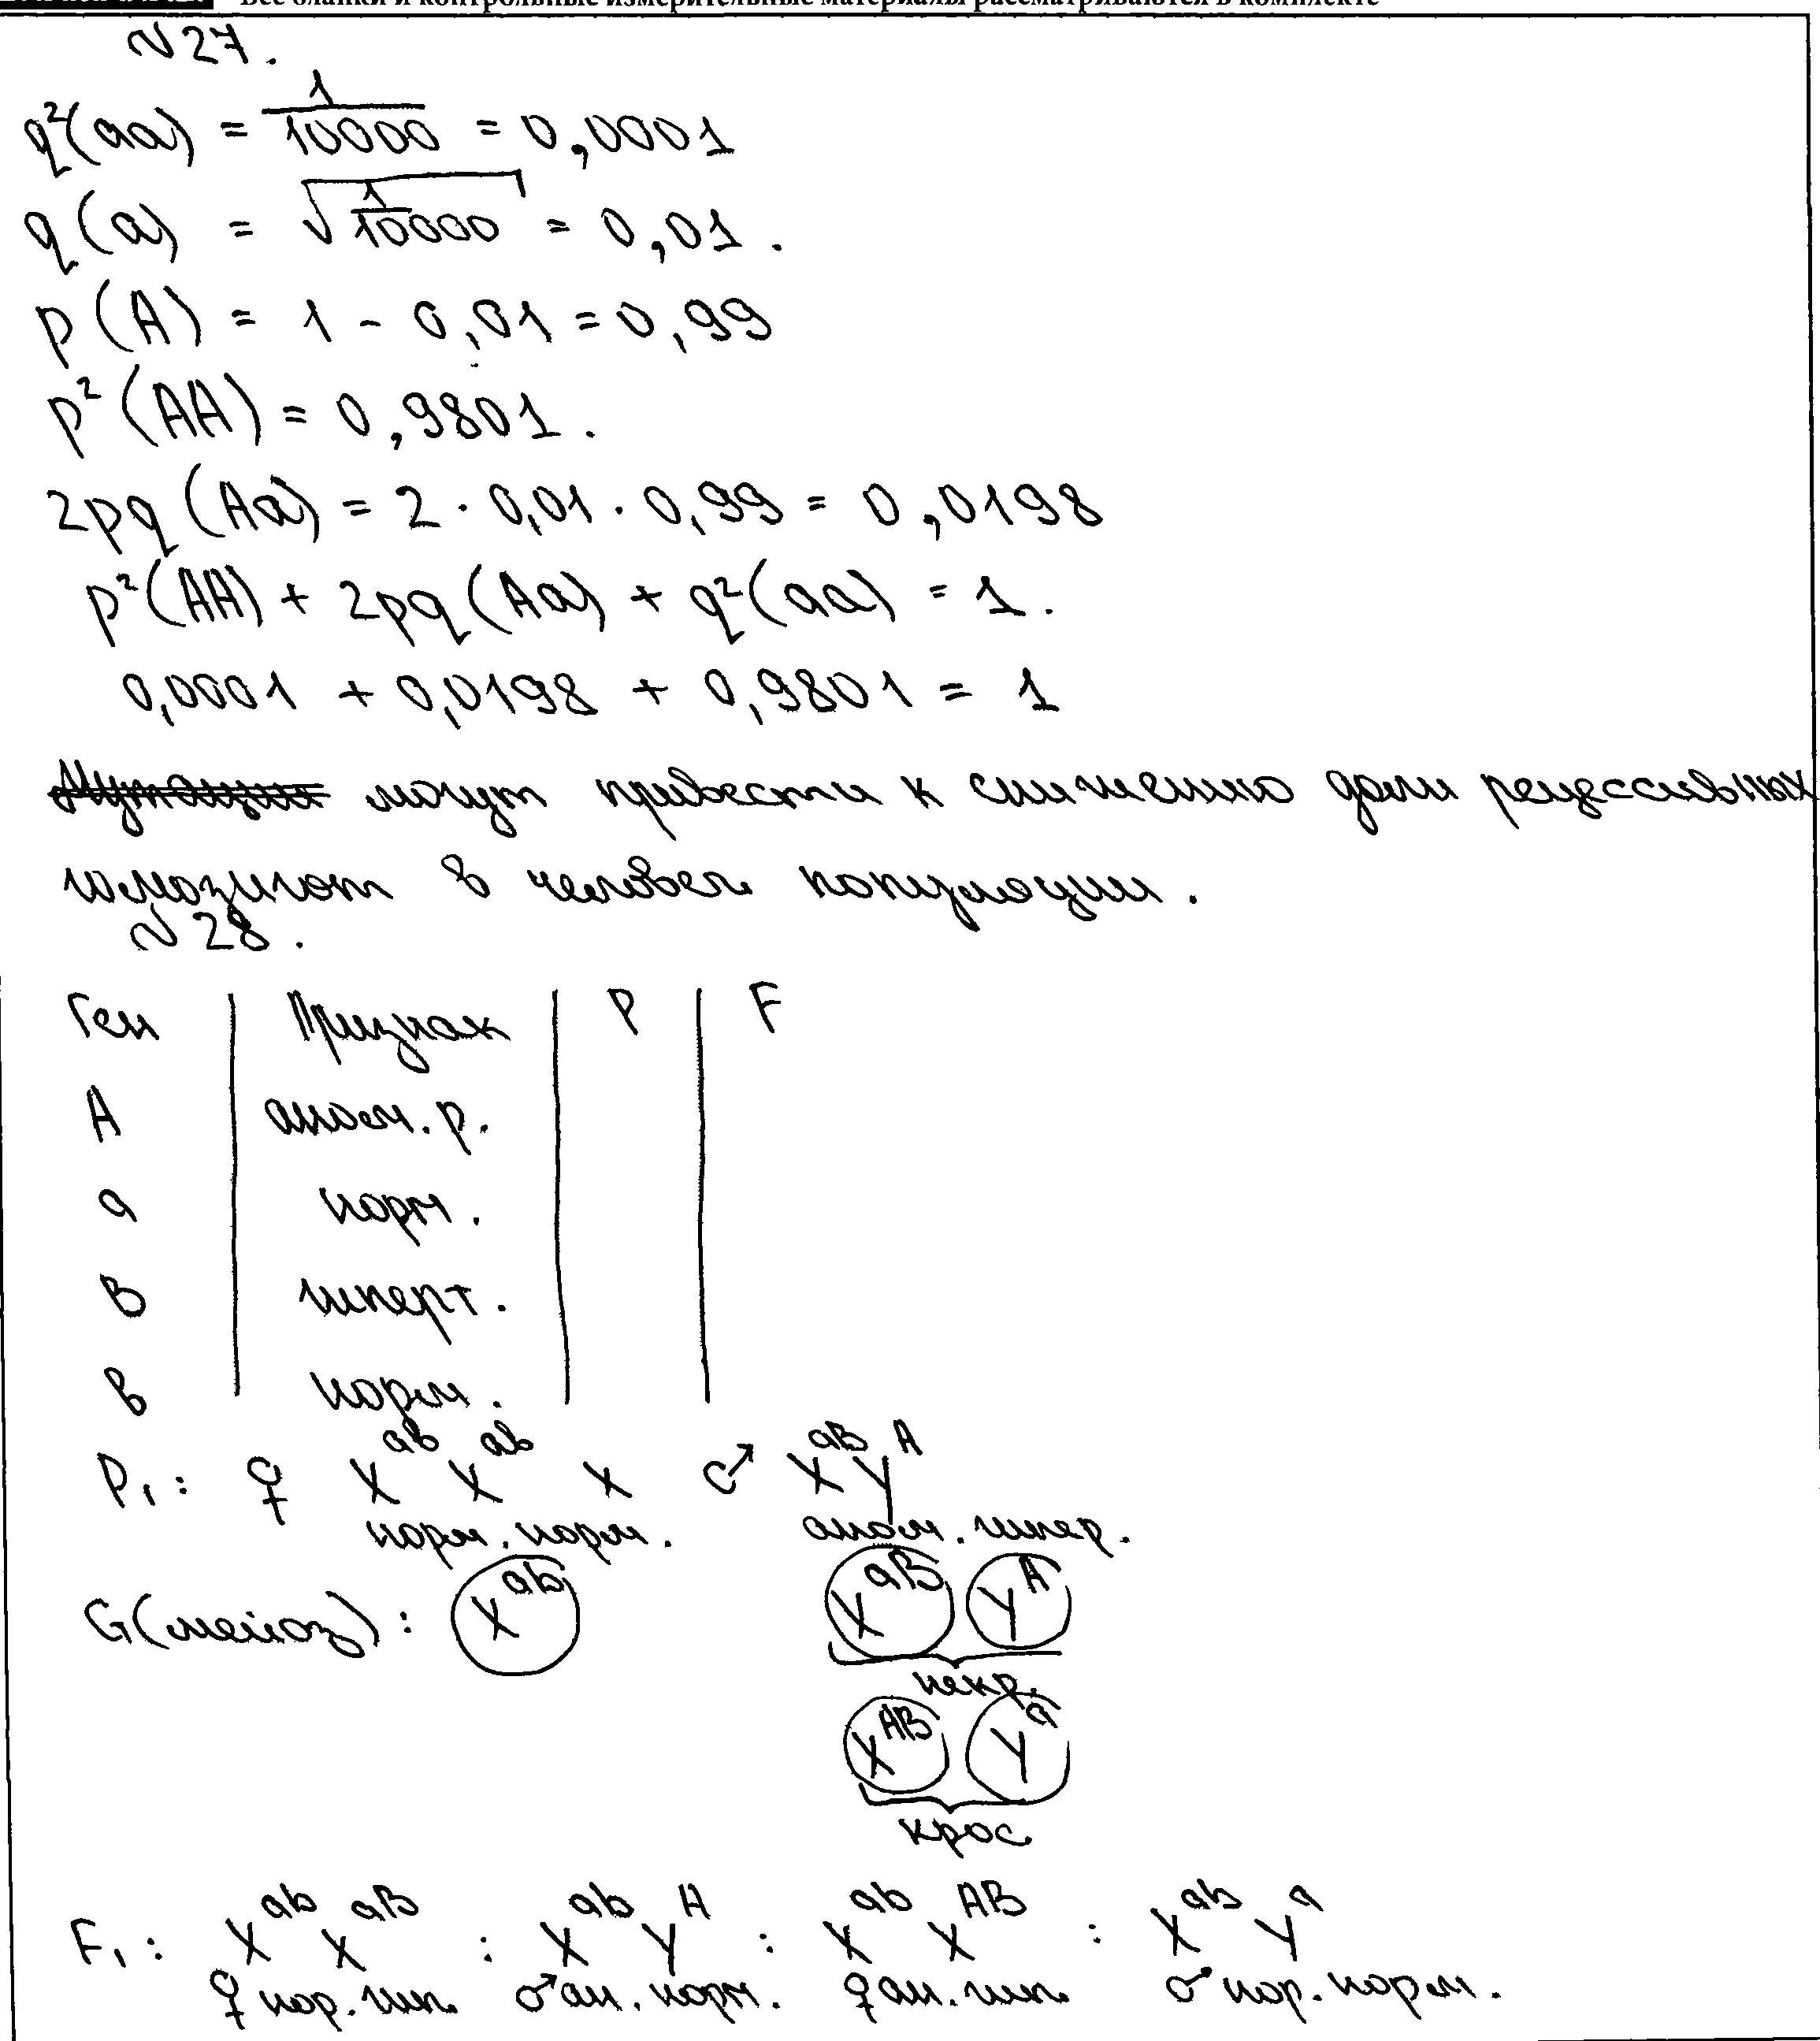 Все бланки и контрольные измерительные материалы рассматриваются в комплекте
№27.
q²(aa) = 1/10000 = 0,0001
q(a) = √(1/10000) = 0,01.
p(A) = 1 - 0,01 = 0,99
p²(AA) = 0,9801.
2pq(Aa) = 2 · 0,01 · 0,99 = 0,0198
p²(AA) + 2pq(Aa) + q²(aa) = 1.
0,0001 + 0,0198 + 0,9801 = 1
Мутации могут привести к снижению доли рецессивных
гомозигот в человеч. популяции.
№28.
Ген | Признак | P | F
A | аном. р.
a | норм.
B | гиперт.
b | норм.
P₁: ♀ XᵃᵇXᵃᵇ x ♂ XᵃᴮYᴬ
норм. норм. аном. гипер.
G(мейоз): Xᵃᵇ Xᵃᴮ Yᴬ
некр.
Xᴬᴮ Yᵃ
крос.
F₁: XᵃᵇXᵃᴮ : XᵃᵇYᴬ : XᵃᵇXᴬᴮ : XᵃᵇYᵃ
♀ нор. гип. ♂ ан. норм. ♀ ан. гип. ♂ нор. норм.